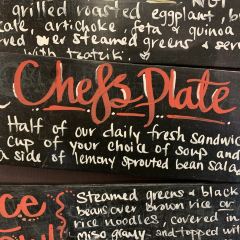 grilled roasted eggplant, b
artichoke, feta & quinoa
over steamed greens & ser
with tzatziki
Chef's Plate
Half of our daily fresh sandwic
cup of your choice of soup and
a side of lemony sprouted bean salad
Steamed greens & black
beans over brown rice or
rice noodles, covered in
miso gravy and topped with